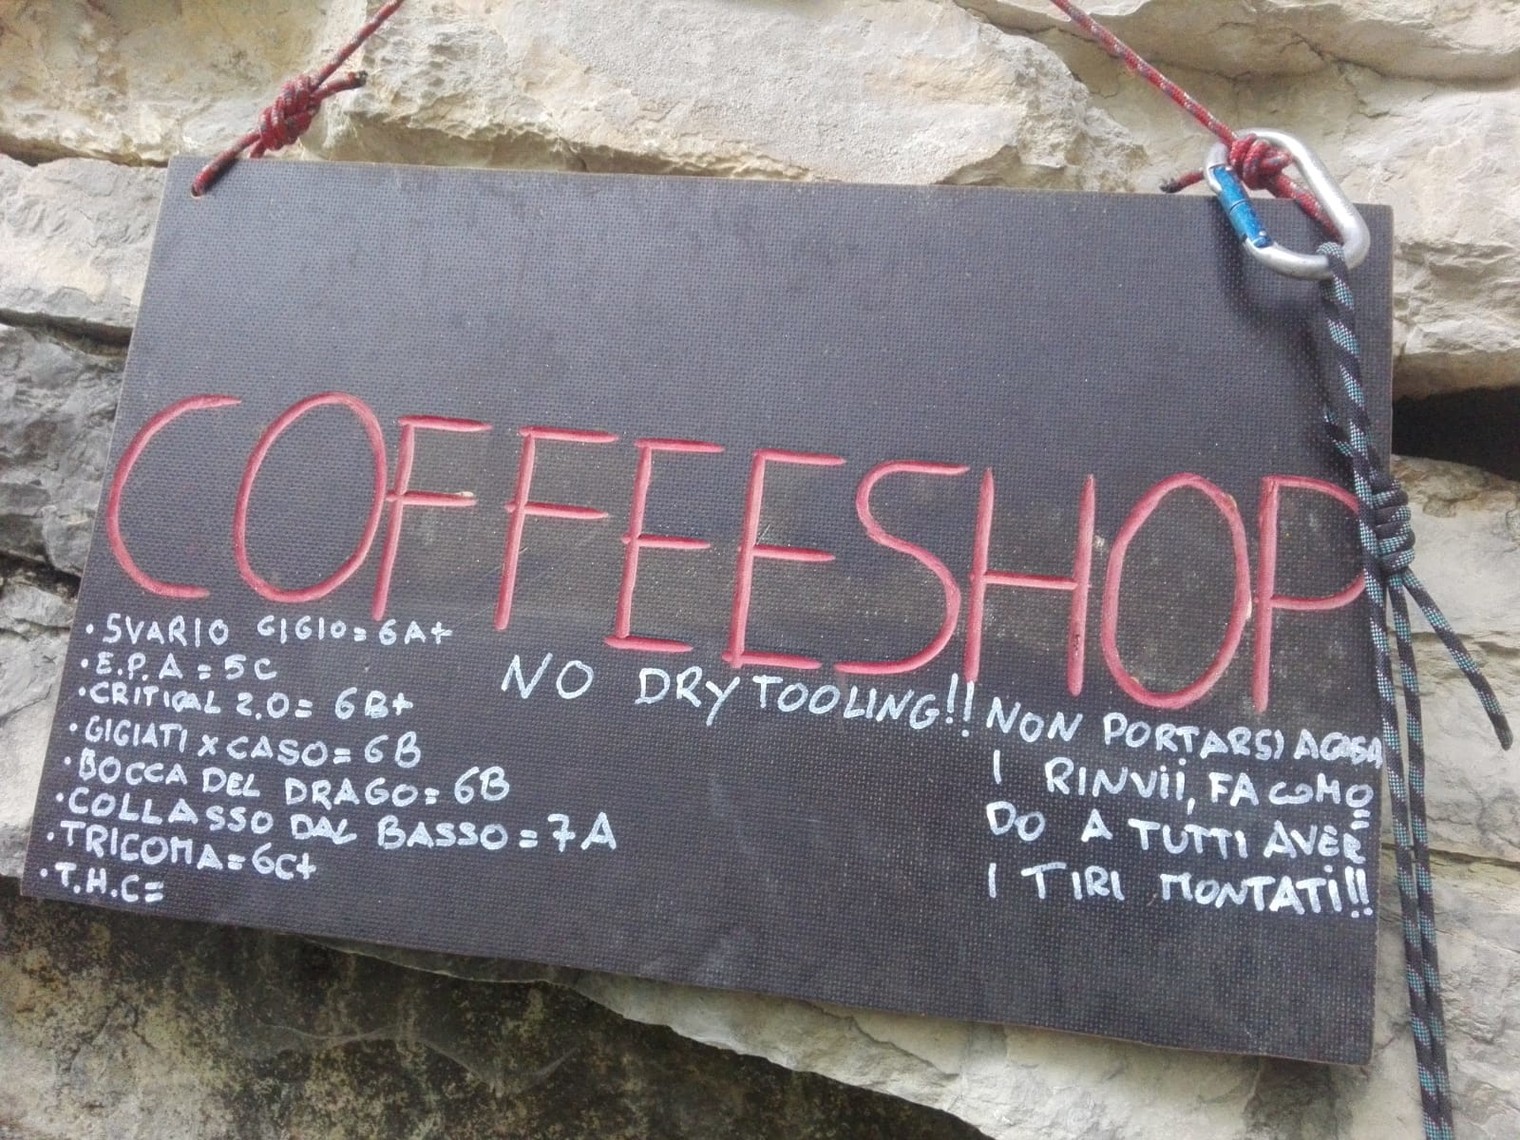 COFFEESHOP
• SVARIO GIGIO = 6A+
• E.P.A = 5C
• CRITICAL 2.0 = 6B+
• GIGIATI X CASO = 6B
• BOCCA DEL DRAGO = 6B
• COLLASSO DAL BASSO = 7A
• TRICOMA = 6C+
• T.H.C =
NO DRYTOOLING!!
NON PORTARSI A CASA
I RINVII, FA COMO=
DO A TUTTI AVER
I TIRI MONTATI!!